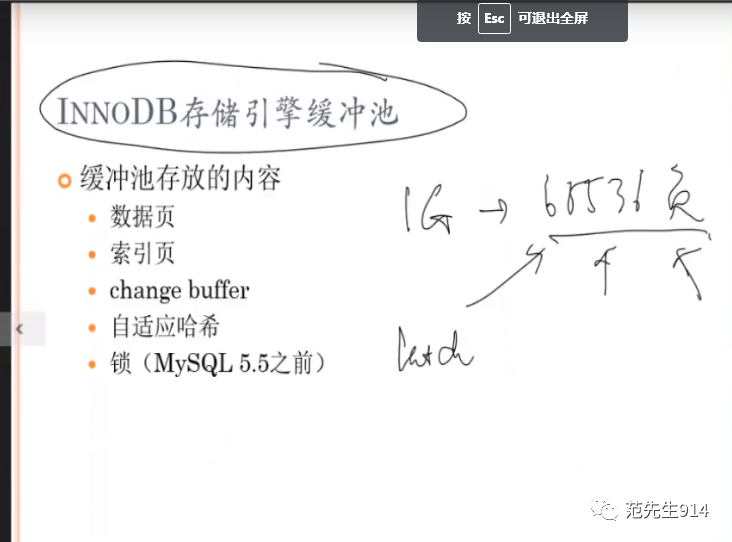 按 Esc 可退出全屏
INNODB存储引擎缓冲池
缓冲池存放的内容
数据页
索引页
change buffer
自适应哈希
锁（MySQL 5.5之前）
1G → 65536 页
latch
范先生914